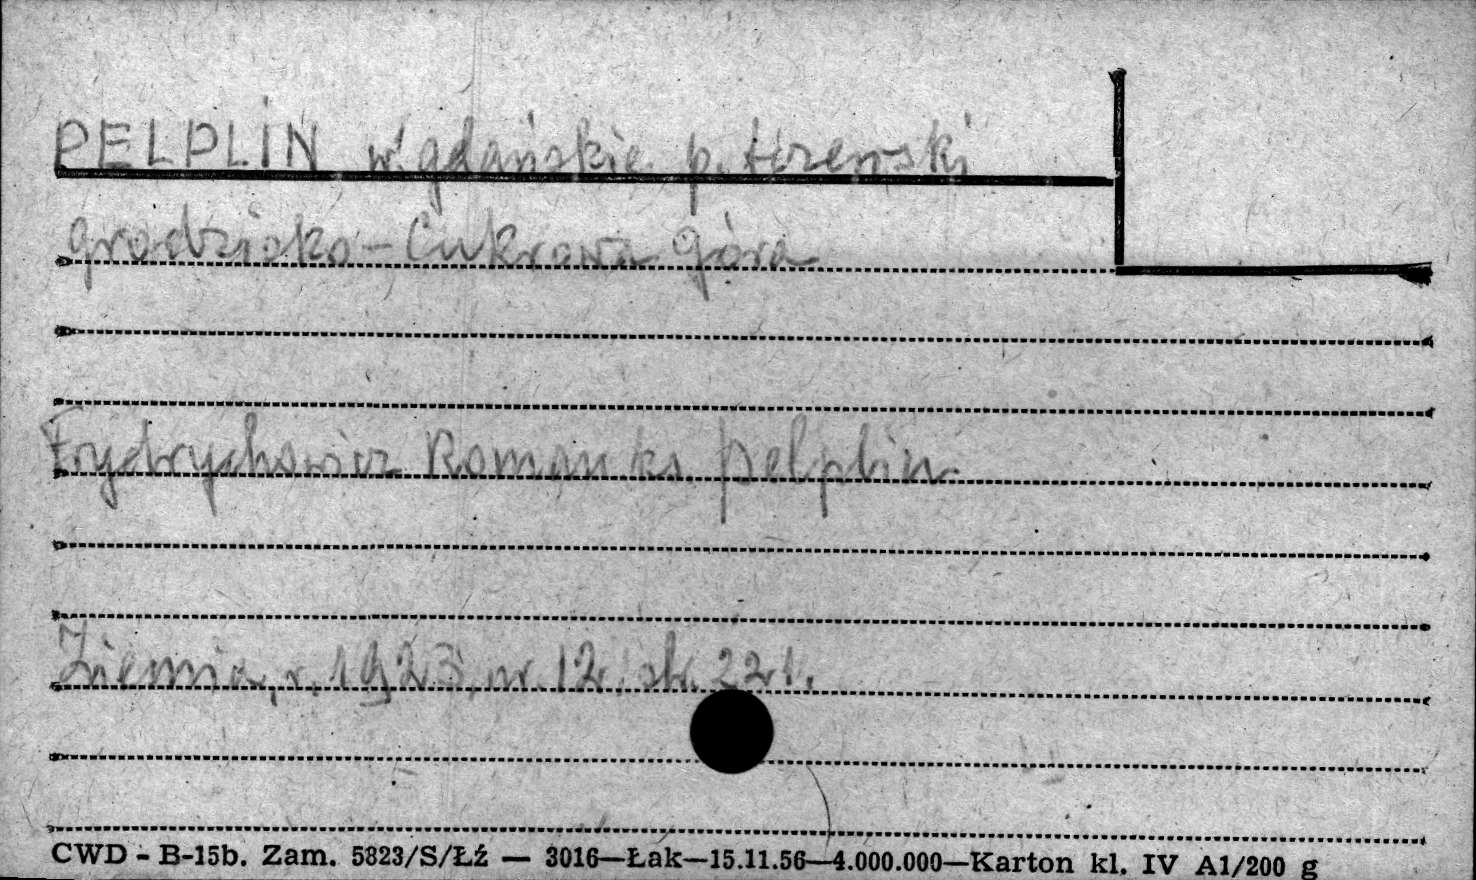 PELPLIN w. gdańskie p. tczewski
grodzisko - Cukrowa Góra
Frydrychowicz Roman ks. Pelplin.
Ziemia, r. 1923, nr. 12, str. 221.
CWD - B-15b. Zam. 5823/S/Łź — 3016—Łak—15.11.56—4.000.000—Karton kl. IV A1/200 g